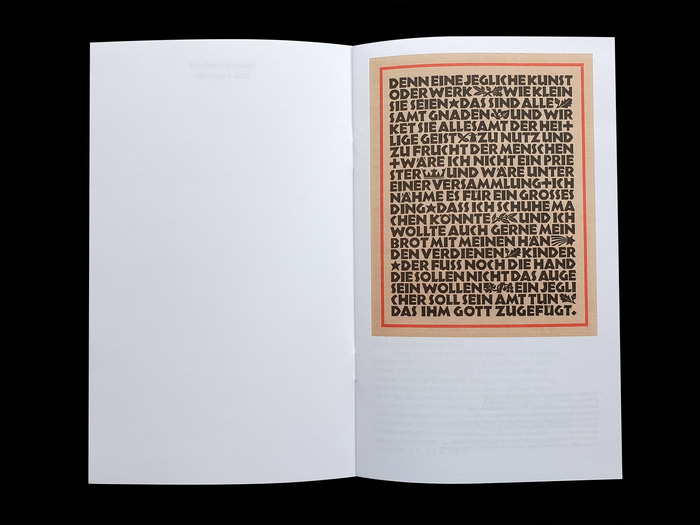 DENN EINE JEGLICHE KUNST
ODER WERK WIE KLEIN
SIE SEIEN★DAS SIND ALLE
SAMT GNADEN UND WIR
KET SIE ALLESAMT DER HEI+
LIGE GEIST ZU NUTZ UND
ZU FRUCHT DER MENSCHEN
+WÄRE ICH NICHT EIN PRIE
STER UND WÄRE UNTER
EINER VERSAMMLUNG+ICH
NÄHME ES FÜR EIN GROSSES
DING★DASS ICH SCHUHE MA
CHEN KÖNNTE UND ICH
WOLLTE AUCH GERNE MEIN
BROT MIT MEINEN HÄN
DEN VERDIENEN KINDER
★DER FUSS NOCH DIE HAND
DIE SOLLEN NICHT DAS AUGE
SEIN WOLLEN EIN JEGLI
CHER SOLL SEIN AMT TUN
DAS IHM GOTT ZUGEFÜGT.